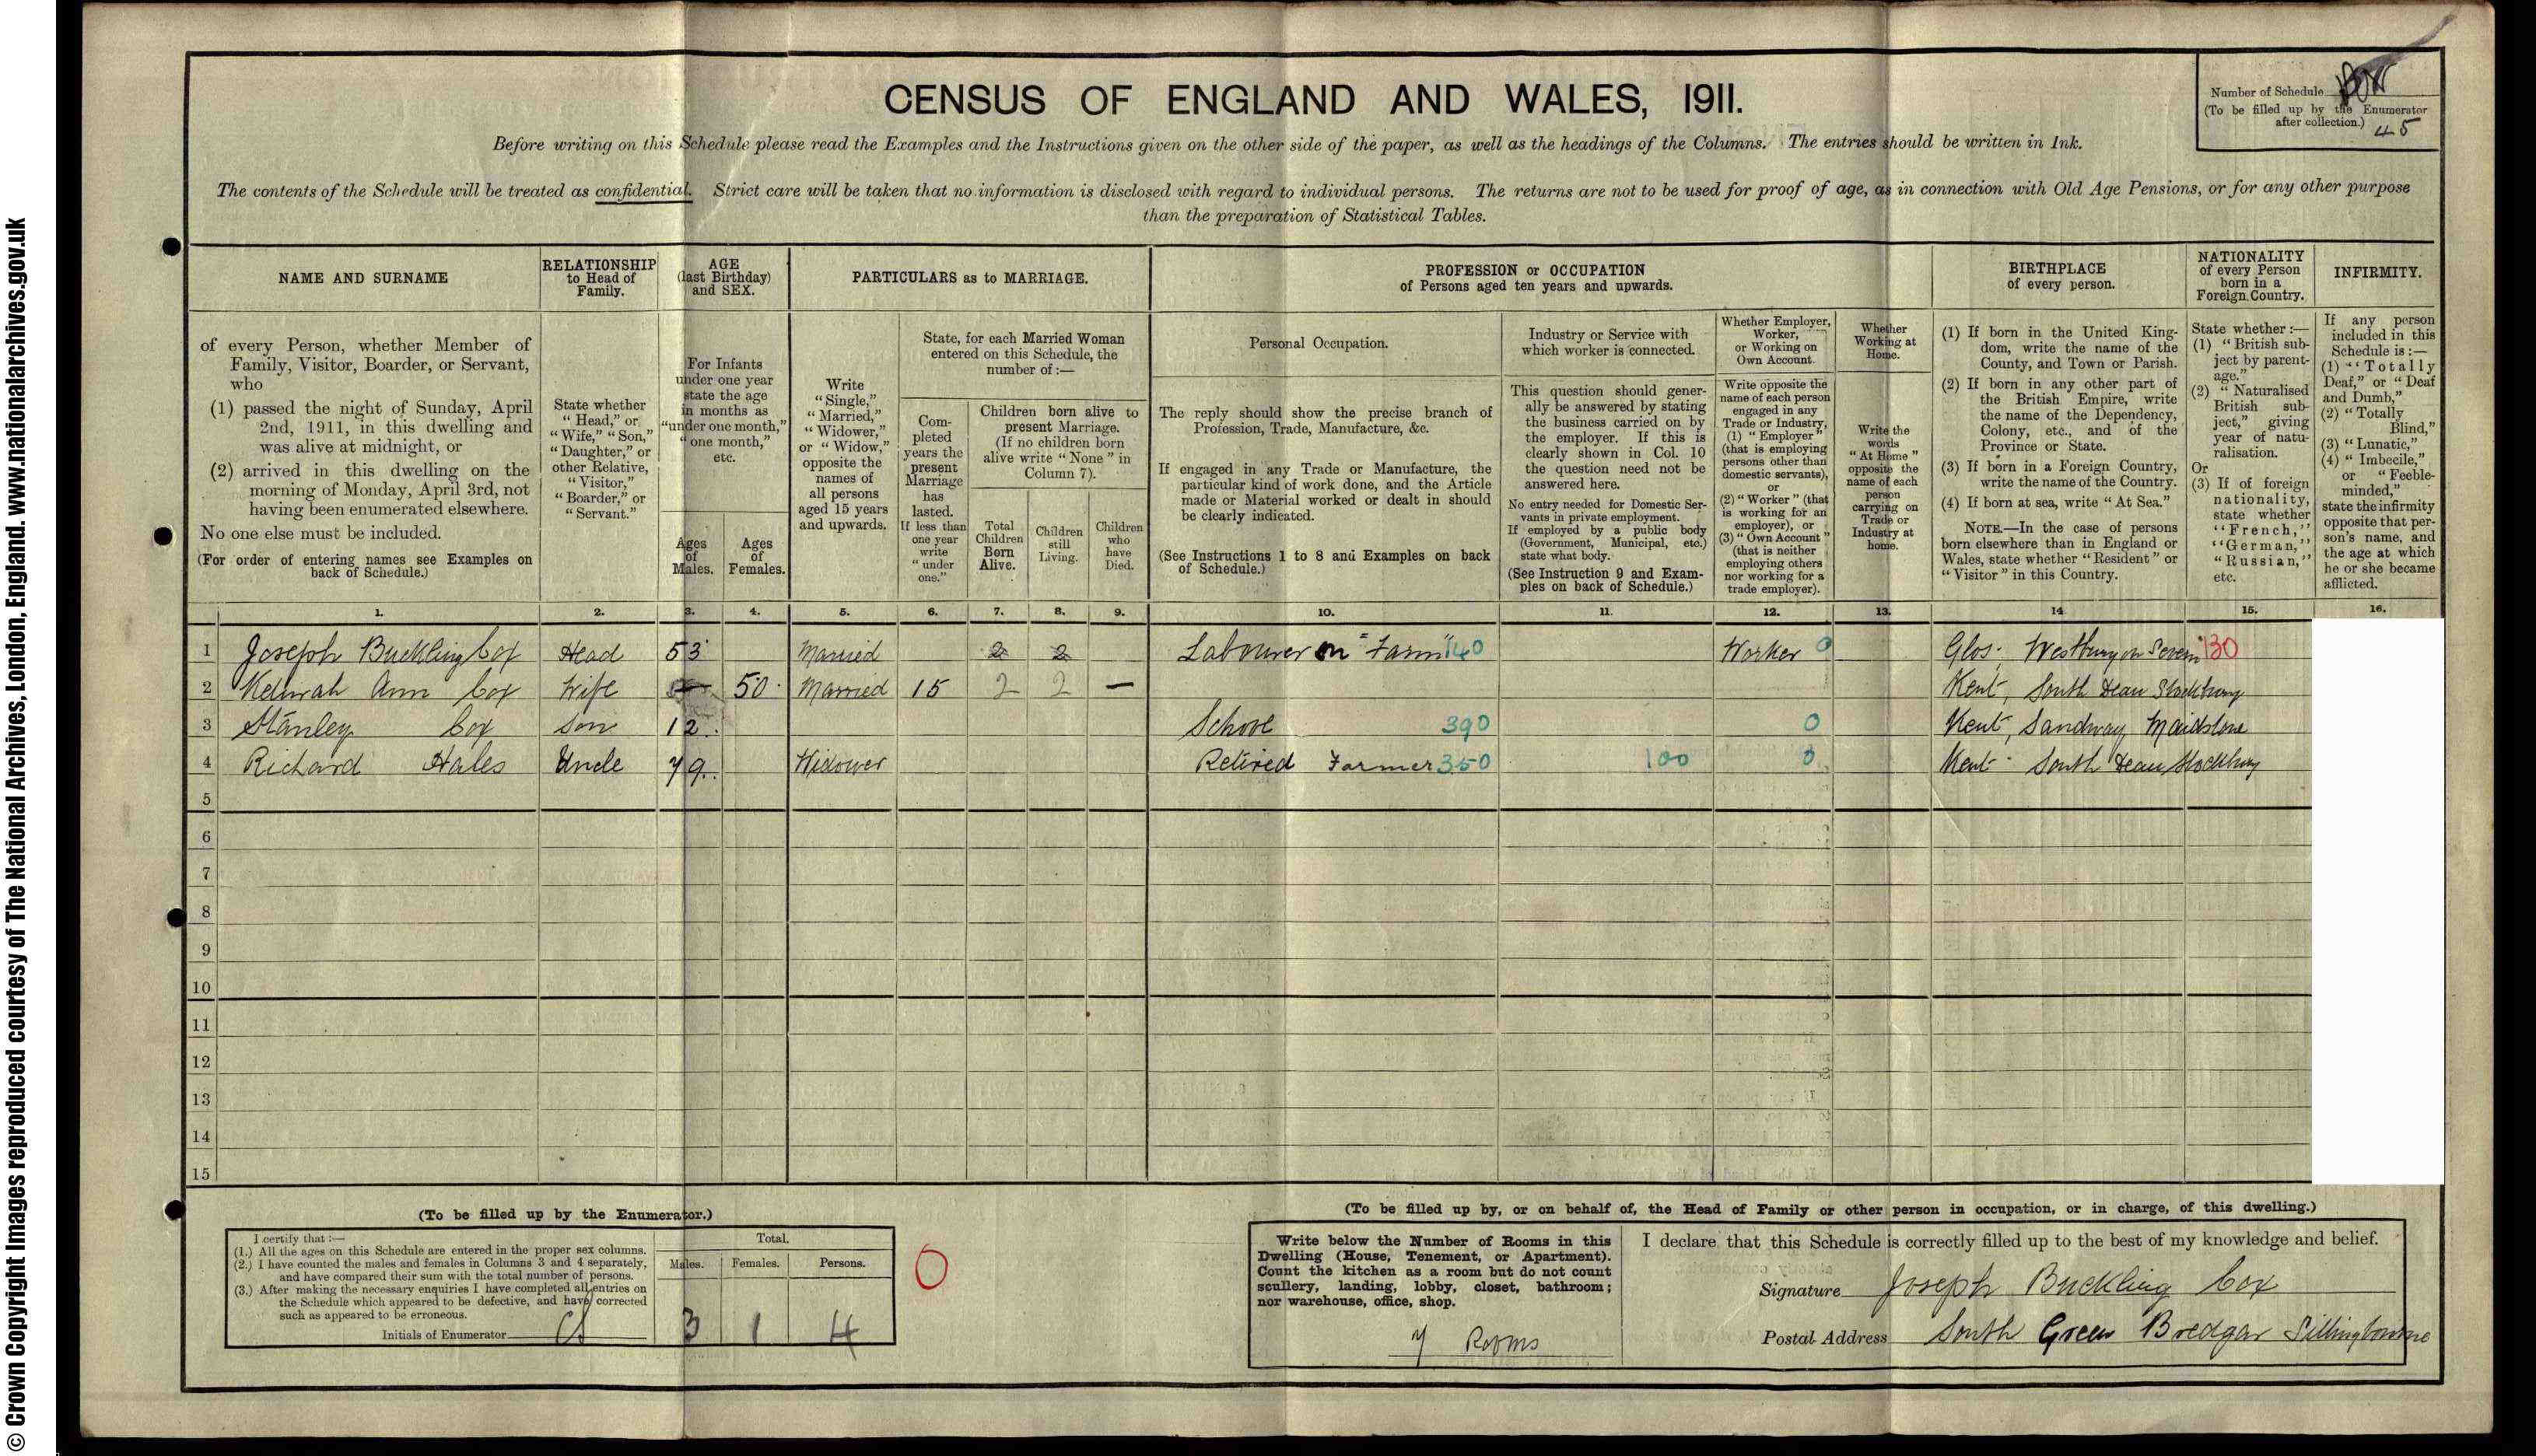 © Crown Copyright Images reproduced courtesy of The National Archives, London, England. www.nationalarchives.gov.uk
CENSUS OF ENGLAND AND WALES, 1911.
Number of Schedule
(To be filled up by the Enumerator
after collection.) 45
Before writing on this Schedule please read the Examples and the Instructions given on the other side of the paper, as well as the headings of the Columns. The entries should be written in Ink.
The contents of the Schedule will be treated as confidential. Strict care will be taken that no information is disclosed with regard to individual persons. The returns are not to be used for proof of age, as in connection with Old Age Pensions, or for any other purpose
than the preparation of Statistical Tables.
NAME AND SURNAME
of every Person, whether Member of
Family, Visitor, Boarder, or Servant,
who
(1) passed the night of Sunday, April
2nd, 1911, in this dwelling and
was alive at midnight, or
(2) arrived in this dwelling on the
morning of Monday, April 3rd, not
having been enumerated elsewhere.
No one else must be included.
(For order of entering names see Examples on
back of Schedule.)
RELATIONSHIP
to Head of
Family.
State whether
"Head," or
"Wife," "Son,"
"Daughter," or
other Relative,
"Visitor,"
"Boarder," or
"Servant."
AGE
(last Birthday)
and SEX.
For Infants
under one year
state the age
in months as
"under one month,"
"one month,"
etc.
Ages
of
Males.
Ages
of
Females.
PARTICULARS as to MARRIAGE.
Write
"Single,"
"Married,"
"Widower,"
or "Widow,"
opposite the
names of
all persons
aged 15 years
and upwards.
State, for each Married Woman
entered on this Schedule, the
number of :—
Com-
pleted
years the
present
Marriage
has
lasted.
If less than
one year
write
"under
one."
Children born alive to
present Marriage.
(If no children born
alive write "None" in
Column 7).
Total
Children
Born
Alive.
Children
still
Living.
Children
who
have
Died.
PROFESSION or OCCUPATION
of Persons aged ten years and upwards.
Personal Occupation.
The reply should show the precise branch of
Profession, Trade, Manufacture, &c.
If engaged in any Trade or Manufacture, the
particular kind of work done, and the Article
made or Material worked or dealt in should
be clearly indicated.
(See Instructions 1 to 8 and Examples on back
of Schedule.)
Industry or Service with
which worker is connected.
This question should gener-
ally be answered by stating
the business carried on by
the employer. If this is
clearly shown in Col. 10
the question need not be
answered here.
No entry needed for Domestic Ser-
vants in private employment.
If employed by a public body
(Government, Municipal, etc.)
state what body.
(See Instruction 9 and Exam-
ples on back of Schedule.)
Whether Employer,
Worker,
or Working on
Own Account.
Write opposite the
name of each person
engaged in any
Trade or Industry,
(1) "Employer"
(that is employing
persons other than
domestic servants),
or
(2) "Worker" (that
is working for an
employer), or
(3) "Own Account"
(that is neither
employing others
nor working for a
trade employer).
Whether
Working at
Home.
Write the
words
"At Home"
opposite the
name of each
person
carrying on
Trade or
Industry at
home.
BIRTHPLACE
of every person.
(1) If born in the United King-
dom, write the name of the
County, and Town or Parish.
(2) If born in any other part of
the British Empire, write
the name of the Dependency,
Colony, etc., and of the
Province or State.
(3) If born in a Foreign Country,
write the name of the Country.
(4) If born at sea, write "At Sea."
NOTE.—In the case of persons
born elsewhere than in England or
Wales, state whether "Resident" or
"Visitor" in this Country.
NATIONALITY
of every Person
born in a
Foreign Country.
State whether :—
(1) "British sub-
ject by parent-
age."
(2) "Naturalised
British sub-
ject," giving
year of natu-
ralisation.
Or
(3) If of foreign
nationality,
state whether
"French,"
"German,"
"Russian,"
etc.
INFIRMITY.
If any person
included in this
Schedule is :—
(1) "Totally
Deaf," or "Deaf
and Dumb,"
(2) "Totally
Blind,"
(3) "Lunatic,"
(4) "Imbecile,"
or "Feeble-
minded,"
state the infirmity
opposite that per-
son's name, and
the age at which
he or she became
afflicted.
1. 2. 3. 4. 5. 6. 7. 8. 9. 10. 11. 12. 13. 14 15. 16.
1 Joseph Buckling Cox Head 53 Married 2 2 Labourer on "Farm" 140 Worker 0 Glos; Westbury on Severn 130
2 Ann Cox Wife 50 Married 15 2 2 — Kent, South Dean Stockbury
3 Stanley Cox Son 12 School 390 0 Kent, Sandway Maidstone
4 Richard Hales Uncle 79 Widower Retired Farmer 350 100 0 Kent South Dean Stockbury
5
6
7
8
9
10
11
12
13
14
15
(To be filled up by the Enumerator.)
I certify that :—
(1.) All the ages on this Schedule are entered in the proper sex columns.
(2.) I have counted the males and females in Columns 3 and 4 separately,
and have compared their sum with the total number of persons.
(3.) After making the necessary enquiries I have completed all entries on
the Schedule which appeared to be defective, and have corrected
such as appeared to be erroneous.
Initials of Enumerator
Total.
Males. Females. Persons.
3 1 4
0
(To be filled up by, or on behalf of, the Head of Family or other person in occupation, or in charge, of this dwelling.)
Write below the Number of Rooms in this
Dwelling (House, Tenement, or Apartment).
Count the kitchen as a room but do not count
scullery, landing, lobby, closet, bathroom;
nor warehouse, office, shop.
7 Rooms
I declare that this Schedule is correctly filled up to the best of my knowledge and belief.
Signature Joseph Buckling Cox
Postal Address South Green Bredgar Sittingbourne